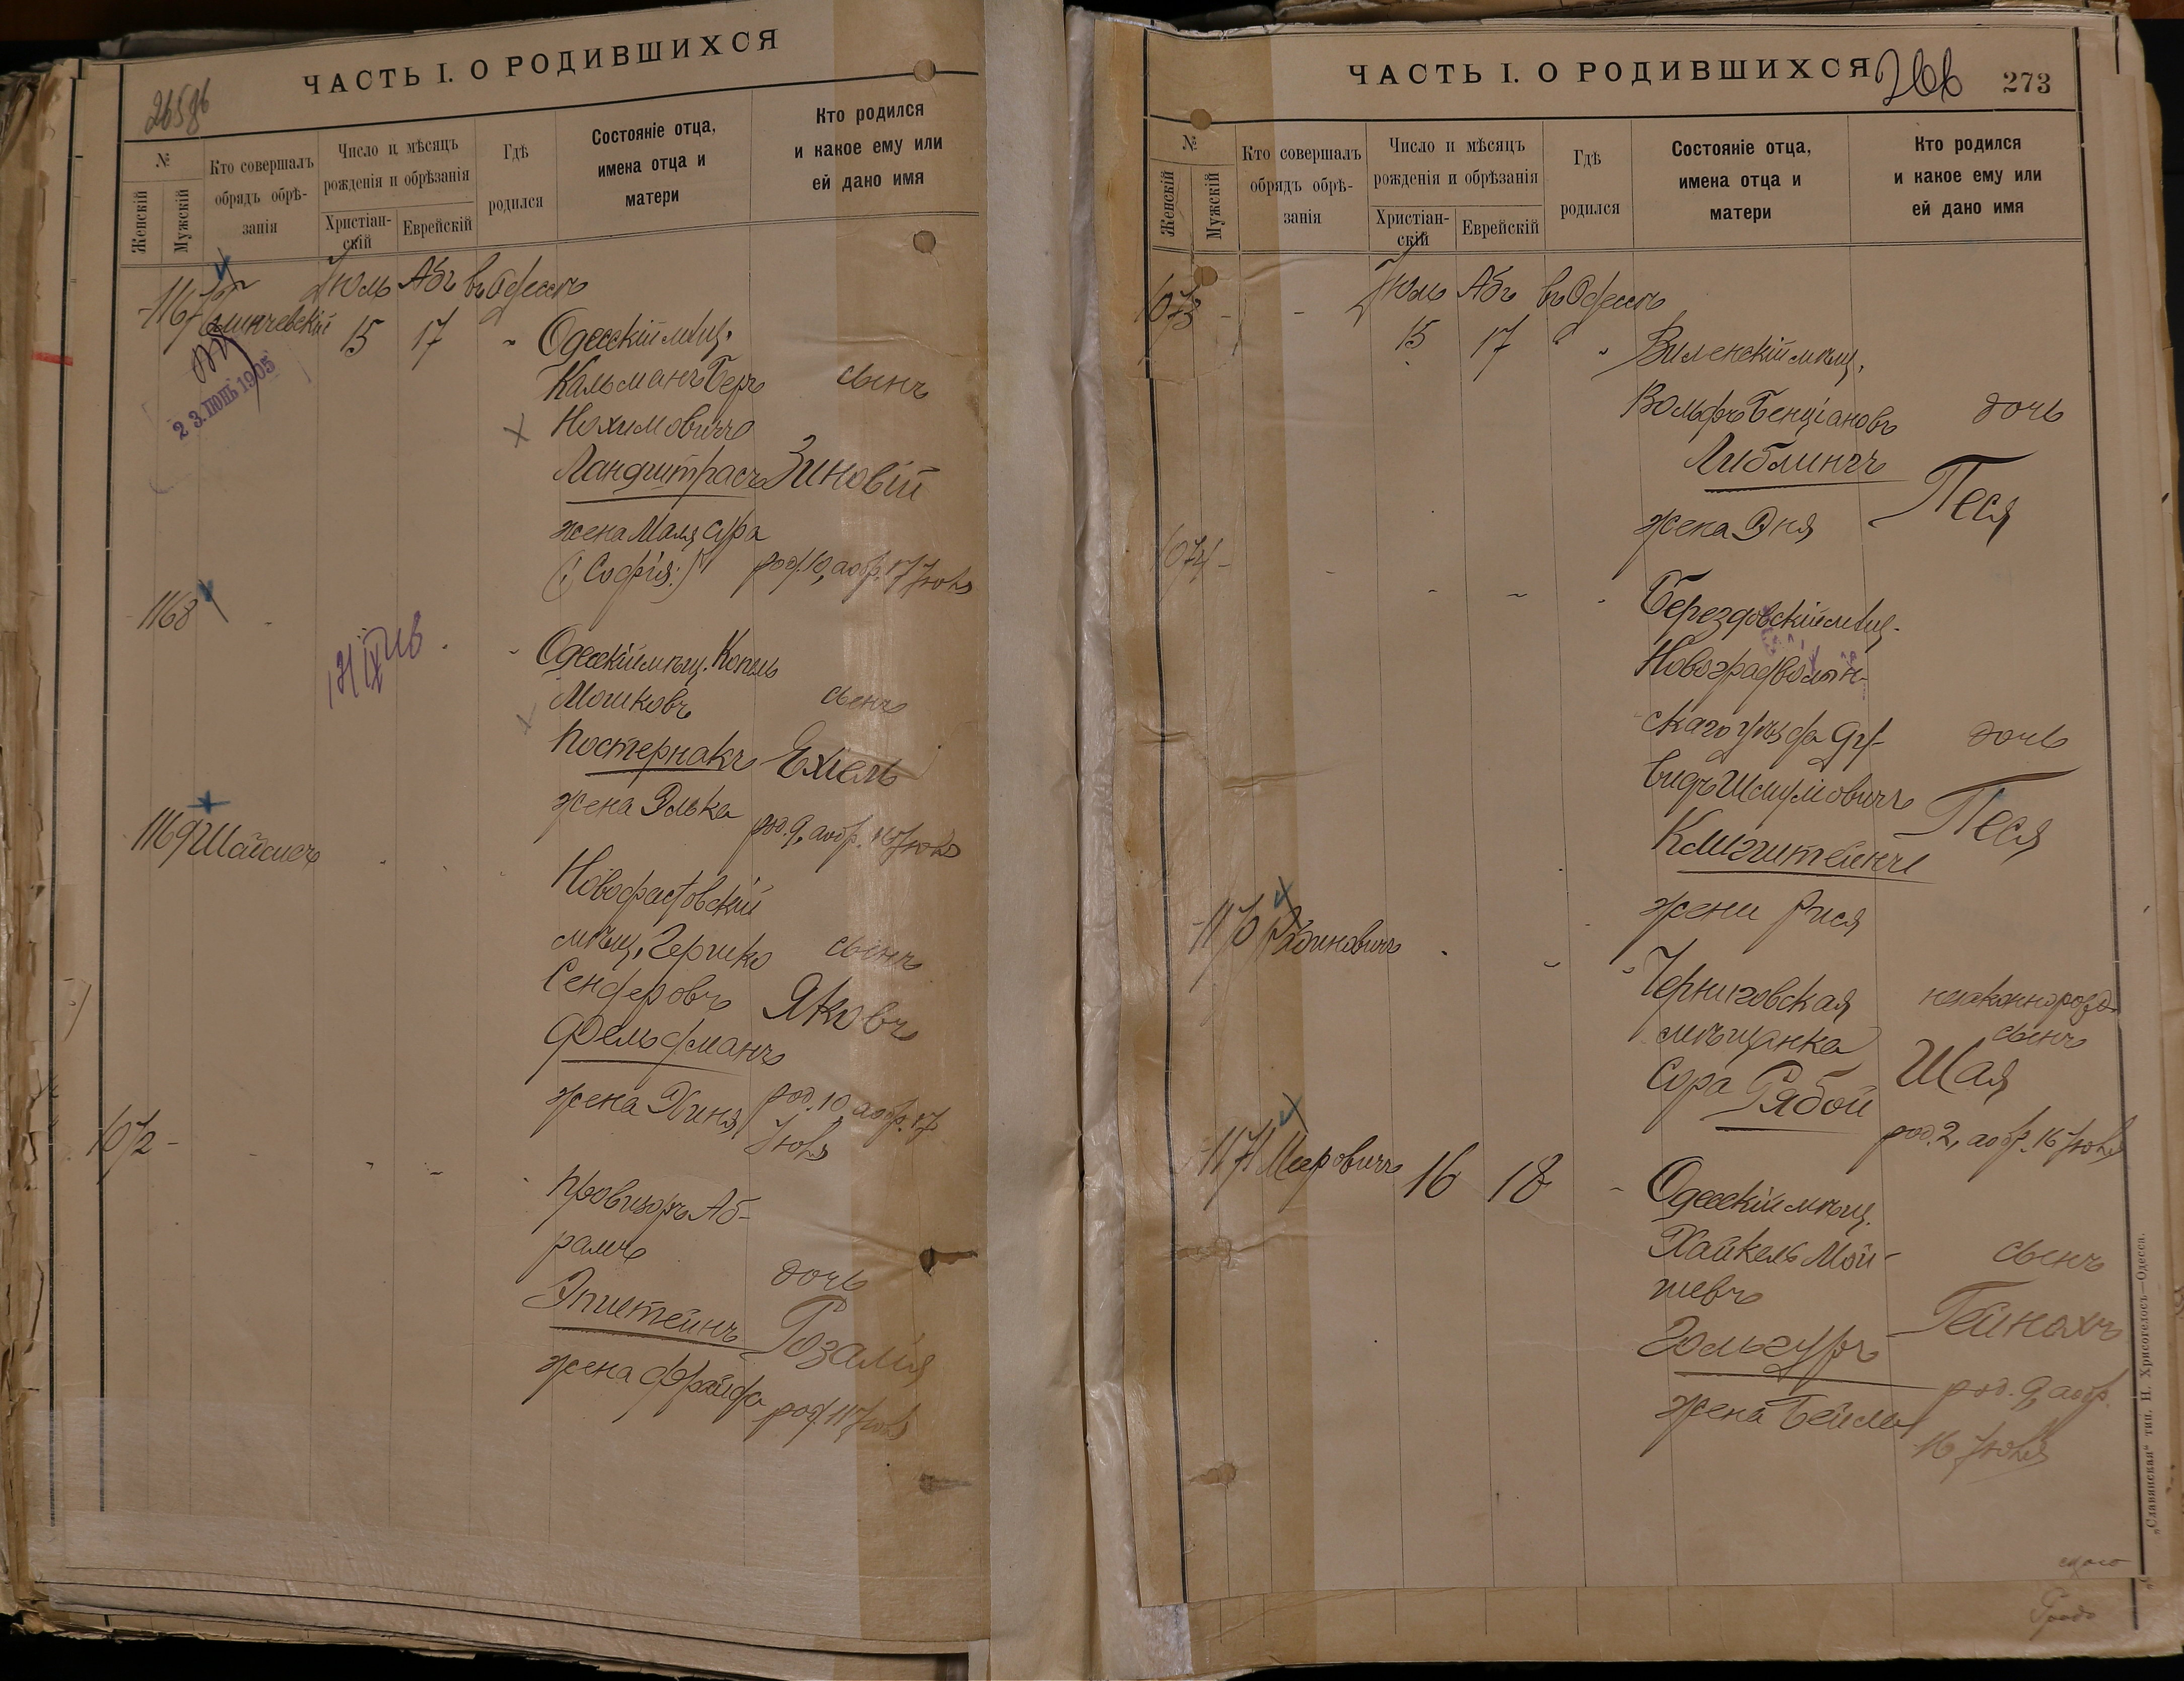 ЧАСТЬ I. О РОДИВШИХСЯ
№
Женскій
Мужскій
Кто совершалъ
обрядъ обрѣ-
занія
Число и мѣсяцъ
рожденія и обрѣзанія
Христіан-
скій
Еврейскій
Гдѣ
родился
Состояніе отца,
имена отца и
матери
Кто родился
и какое ему или
ей дано имя
1167
Іюль Абъ въ Одессѣ
15 17 Одесскій мѣщ.
23. ІЮНЬ 1905
Кальманъ Беръ сынъ
Нохимовичъ
Ландштрасъ Зиновій
жена Маля Сура
(: Софія :) род. 10, а обр. 17 Іюля
1168
Одесскій мѣщ. Копель
Мошковъ сынъ
Постернакъ Ехиель
жена Элька род. 9, а обр. 16 Іюля
1169
Новофастовскій
мѣщ. Гершко сынъ
Сендеровъ Яковъ
Фельдманъ
жена Хиня род. 10, а обр. 17
Іюля
1072 -
Провизоръ Аб-
рамъ
дочь
Эпштейнъ Розалія
жена Фрайда род. 11 Іюля
ЧАСТЬ I. О РОДИВШИХСЯ 266 273
№
Женскій
Мужскій
Кто совершалъ
обрядъ обрѣ-
занія
Число и мѣсяцъ
рожденія и обрѣзанія
Христіан-
скій
Еврейскій
Гдѣ
родился
Состояніе отца,
имена отца и
матери
Кто родился
и какое ему или
ей дано имя
1073 - - Іюль Абъ въ Одессѣ
15 17 Виленскій мѣщ.
Вольфъ Бенціановъ дочь
Либлингъ
жена Эня Песя
1074 -
Берездовскій мѣщ.
Новоградволын-
скаго уѣзда Ду- дочь
видъ Шмулiовичъ
Клигштейнъ Песя
жени Рися
1170 Рабиновичъ
Черниговская незаконнорожд.
мѣщанка сынъ
Сора Рябой Шая
род. 2, а обр. 16 Іюля
1171 Мееровичъ 16 18 Одесскій мѣщ.
Хайкель Мой-
шевъ сынъ
Гользуръ Гейнахъ
жена Бейла род. 9, а обр.
16 Іюля
„Славянская“ тип. Н. Хрисогелосъ—Одесса.